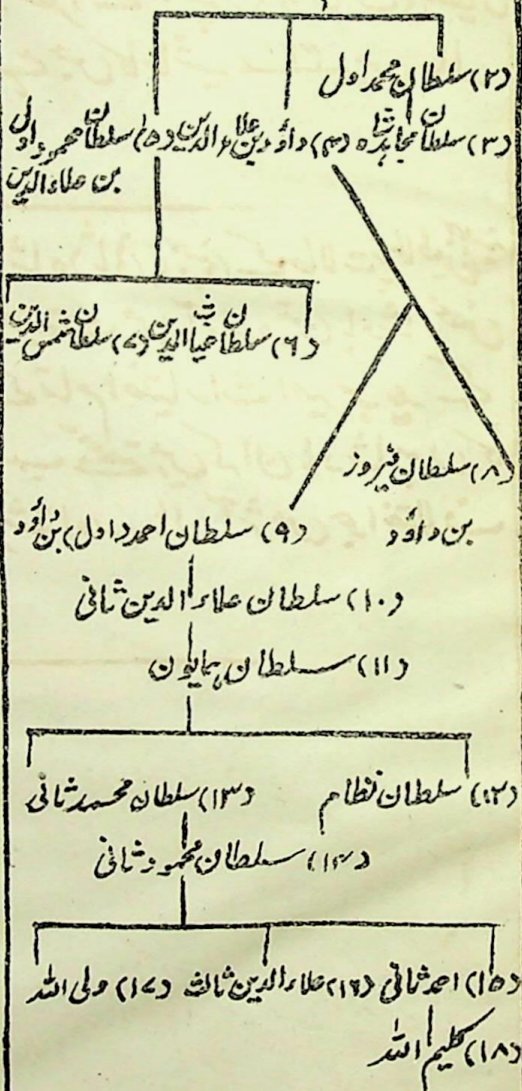 (۲) سلطان محمد اول
(۳) سلطان مجاہد شاہ (۴) داؤد بن علاء الدین (۵) سلطان محمود اول
بن علاء الدین
(۶) سلطان غیاث الدین (۷) سلطان شمس الدین
(۸) سلطان فیروز
بن داؤد
(۹) سلطان احمد (اول) بن داؤد
(۱۰) سلطان علاء الدین ثانی
(۱۱) سلطان ہمایون
(۱۲) سلطان نظام (۱۳) سلطان محمد ثانی
(۱۴) سلطان محمود ثانی
(۱۵) احمد ثانی (۱۶) علاء الدین ثالث (۱۷) ولی اللہ
(۱۸) کلیم اللہ